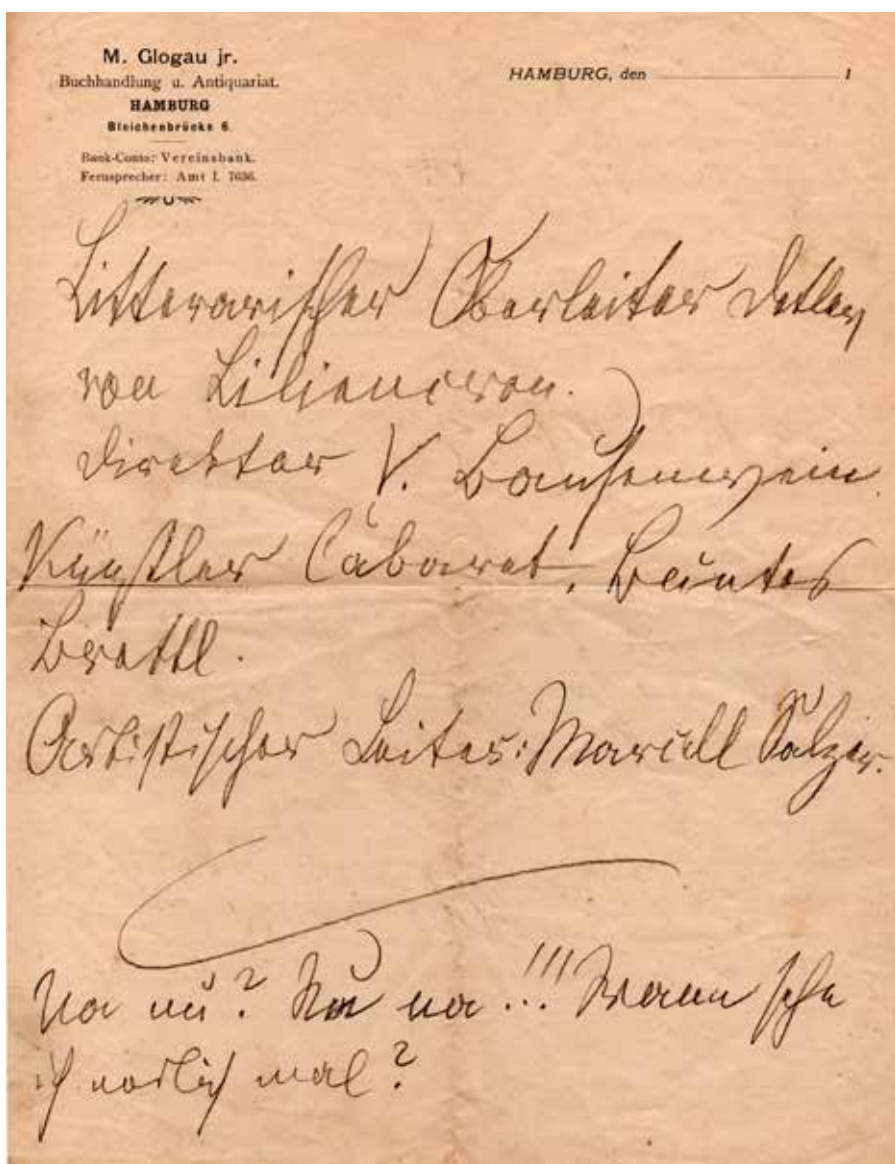 M. Glogau jr.
Buchhandlung u. Antiquariat.
HAMBURG
Bleichenbrücke 6.
Bank-Conto: Vereinsbank.
Fernsprecher: Amt I. 7036.
HAMBURG, den 1
Litterarischer Oberleiter Detlev
von Liliencron.
Direktor V. Bausenwein
Künstler Cabaret, Buntes
Brettl.
Artistischer Leiter: Marcell Salzer.
Na nu? Nu na!!! Wann sehe
ich mal?